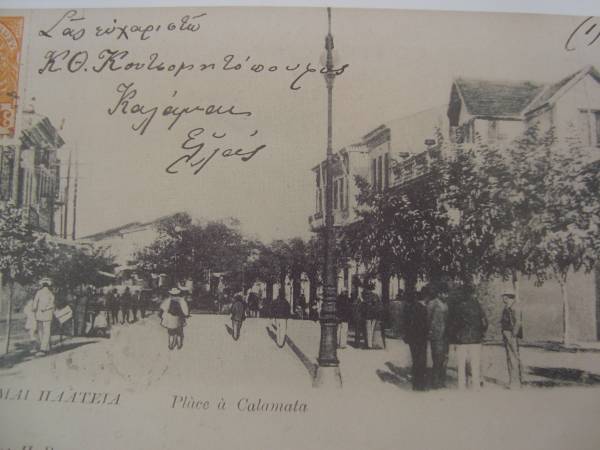 Σᾶς εὐχαριστῶ
Κ.Θ. Κουτσομητόπουλος
Καλάμαι
Ἑλλάς
(1)
ΜΑΙ ΠΛΑΤΕΙΑ Plàce à Calamata